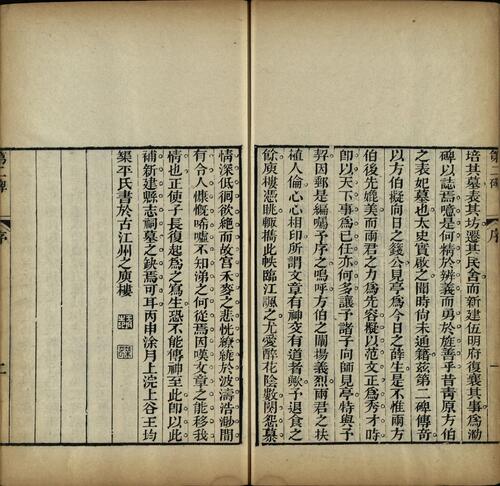 培其墓表其坊遷其民舍而新建伍明府復襄其事爲泐
碑以誌焉噫是何精於辨義而勇於旌善乎昔靑原方伯
之表妃墓也太史實啟之聞時尙未通籍茲第二碑傳奇
以方伯擬向日之錢今見亭爲今日之薛生是不惟兩方
伯後先媲美而雨君之力爲先容擬以范文正爲秀才時
卽以天下事爲己任亦何多讓予諸子向師見亭特與予
契因郵是編囑予序之嗚呼方伯之闡揚義烈雨君之扶
植人倫心心相印所謂文章有神交有道者歟予退食之
餘庾樓憑眺輙擕此帙臨江諷之尤愛醉花陰數闋怨慕
情深低徊欲絶而故宮禾黍之悲恍繚繞於波濤浩渺間
有令人慷慨唏噓不知涕之何從焉因嘆文章之能移我
情也正使子長復起爲之寫生恐不能傳神至此卽以此
補新建縣志祠墓之缺焉可耳丙申涂月上浣上谷王均
榘平氏書於古江州之庾樓
第二碑
序
一
第二碑
序
二